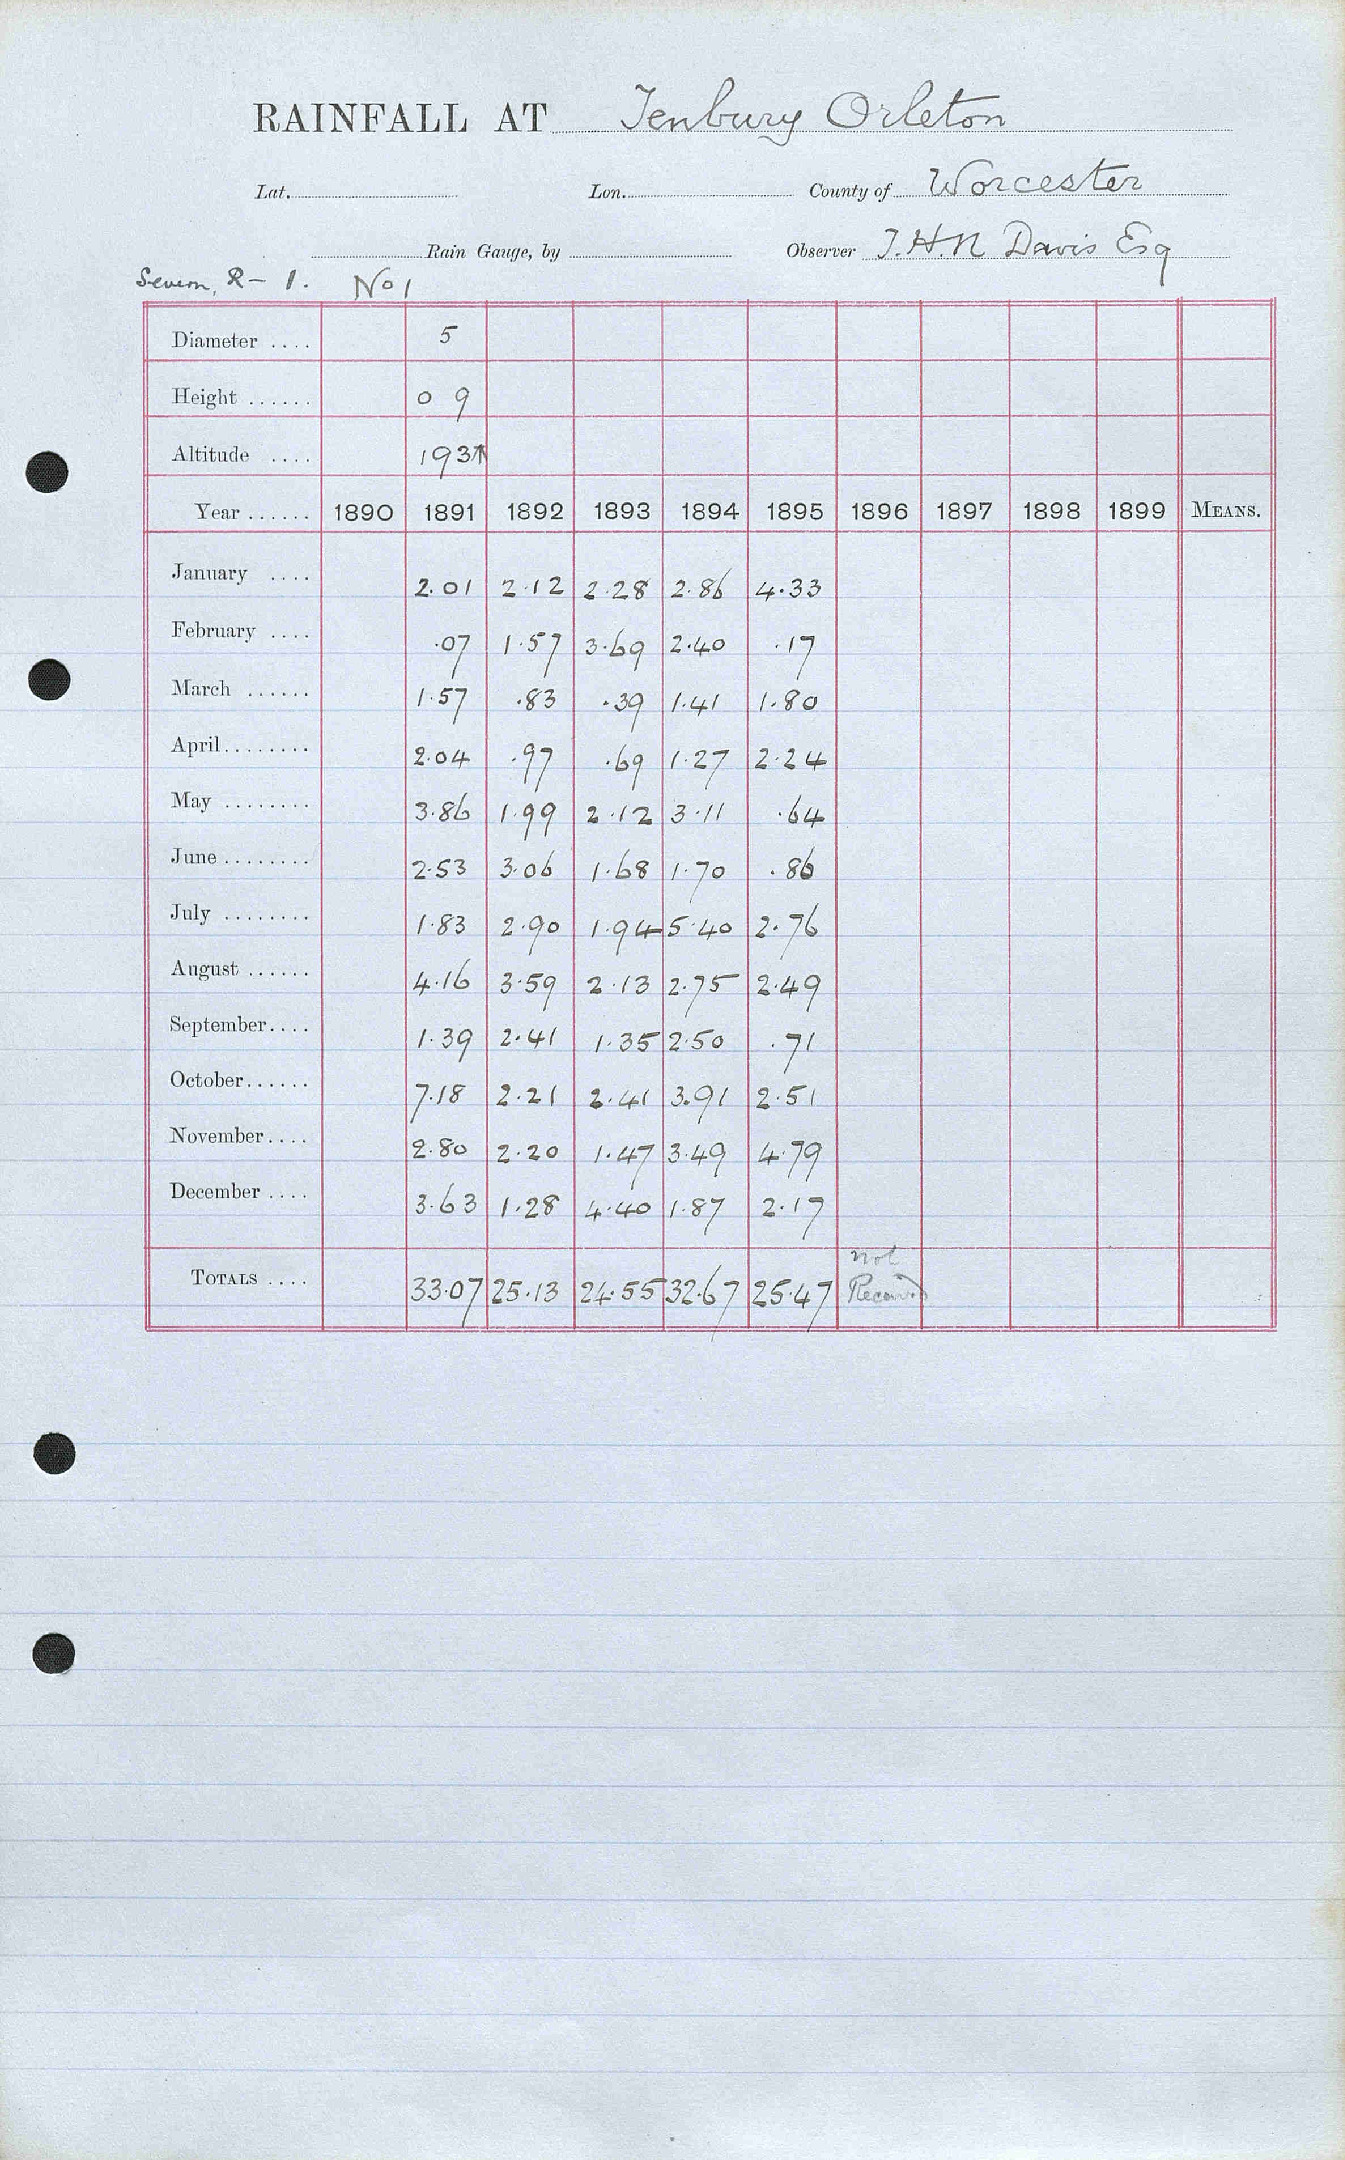 RAINFALL AT Tenbury Orleton
Lat. Lon. County of Worcester
Rain Gauge, by Observer T.H.N Davis Esq
Severn, R - 1. No 1
Diameter .... 5
Height ...... 0 9
Altitude .... 193
Year ...... 1890 1891 1892 1893 1894 1895 1896 1897 1898 1899 MEANS.
January .... 2.01 2.12 2.28 2.86 4.33
February .... .07 1.57 3.69 2.40 .17
March ...... 1.57 .83 .39 1.41 1.80
April ........ 2.04 .97 .69 1.27 2.24
May ........ 3.86 1.99 2.12 3.11 .64
June ........ 2.53 3.06 1.68 1.70 .86
July ........ 1.83 2.90 1.94 5.40 2.76
August ...... 4.16 3.59 2.13 2.75 2.49
September .... 1.39 2.41 1.35 2.50 .71
October ...... 7.18 2.21 2.41 3.91 2.51
November .... 2.80 2.20 1.47 3.49 4.79
December .... 3.63 1.28 4.40 1.87 2.17
TOTALS .... 33.07 25.13 24.55 32.67 25.47 not
Received